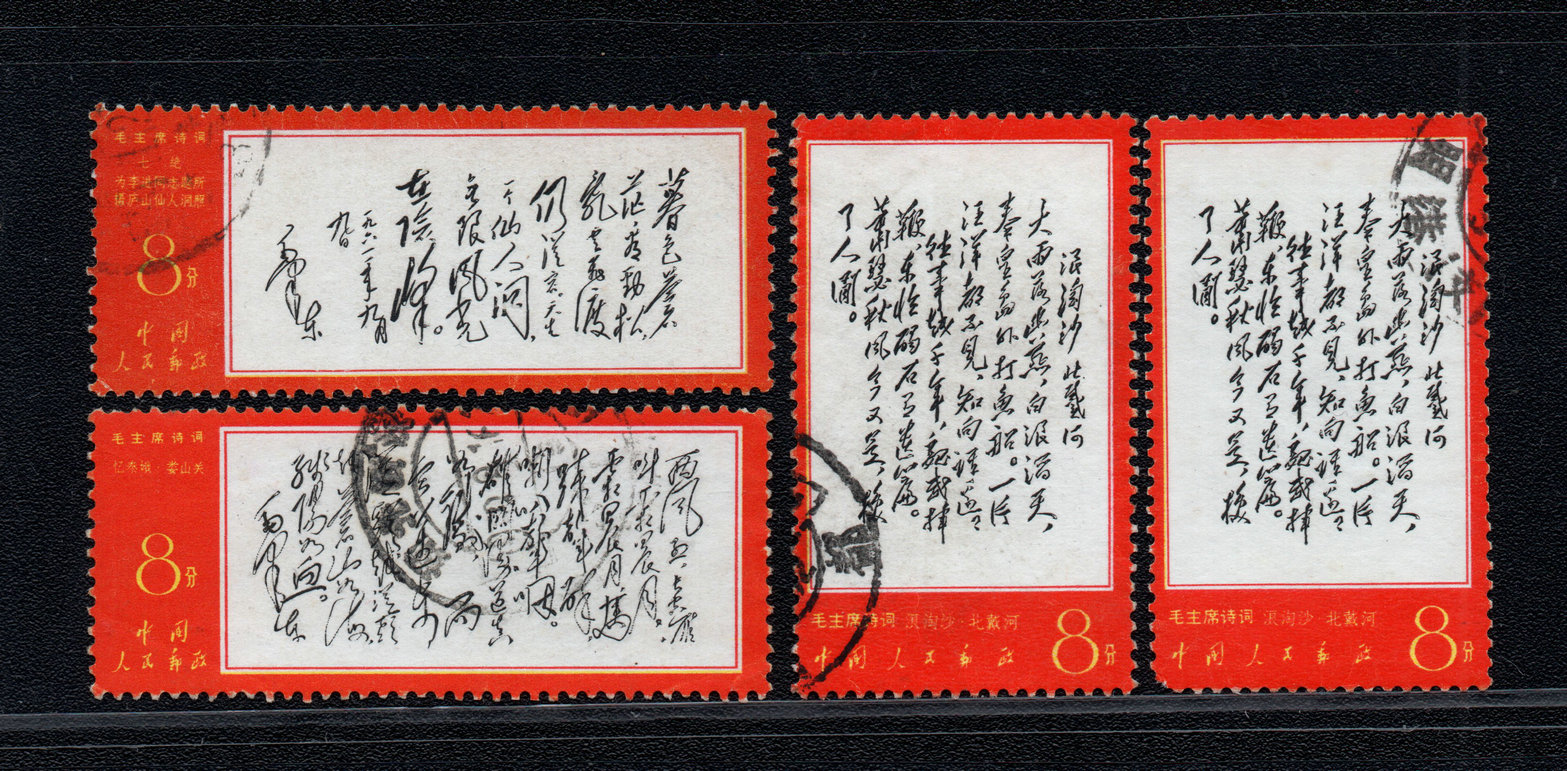 毛主席诗词
七绝
为李进同志题所
摄庐山仙人洞照
8分
中国
人民邮政
暮色蒼
茫看勁松，
亂雲飛渡
仍從容。天生
一个仙人洞，
無限風光
在險峰。
一九六一年九月
九日
毛澤東
毛主席诗词
忆秦娥·娄山关
8分
中国
人民邮政
西風烈，長空雁
叫霜晨月。
霜晨月，馬
蹄聲碎，
喇叭聲咽。
雄關漫道真
如鐵，而
今邁步
從頭越。從頭
越，蒼山如海，
殘陽如血。
毛澤東
浪淘沙 北戴河
大雨落幽燕，白浪滔天，
秦皇島外打魚船。一片
汪洋都不見，知向誰邊？
往事越千年，魏武揮
鞭，東臨碣石有遺篇。
蕭瑟秋風今又是，換
了人間。
毛主席诗词 浪淘沙·北戴河
中国人民邮政 8分
浪淘沙 北戴河
大雨落幽燕，白浪滔天，
秦皇島外打魚船。一片
汪洋都不見，知向誰邊？
往事越千年，魏武揮
鞭，東臨碣石有遺篇。
蕭瑟秋風今又是，換
了人間。
毛主席诗词 浪淘沙·北戴河
中国人民邮政 8分